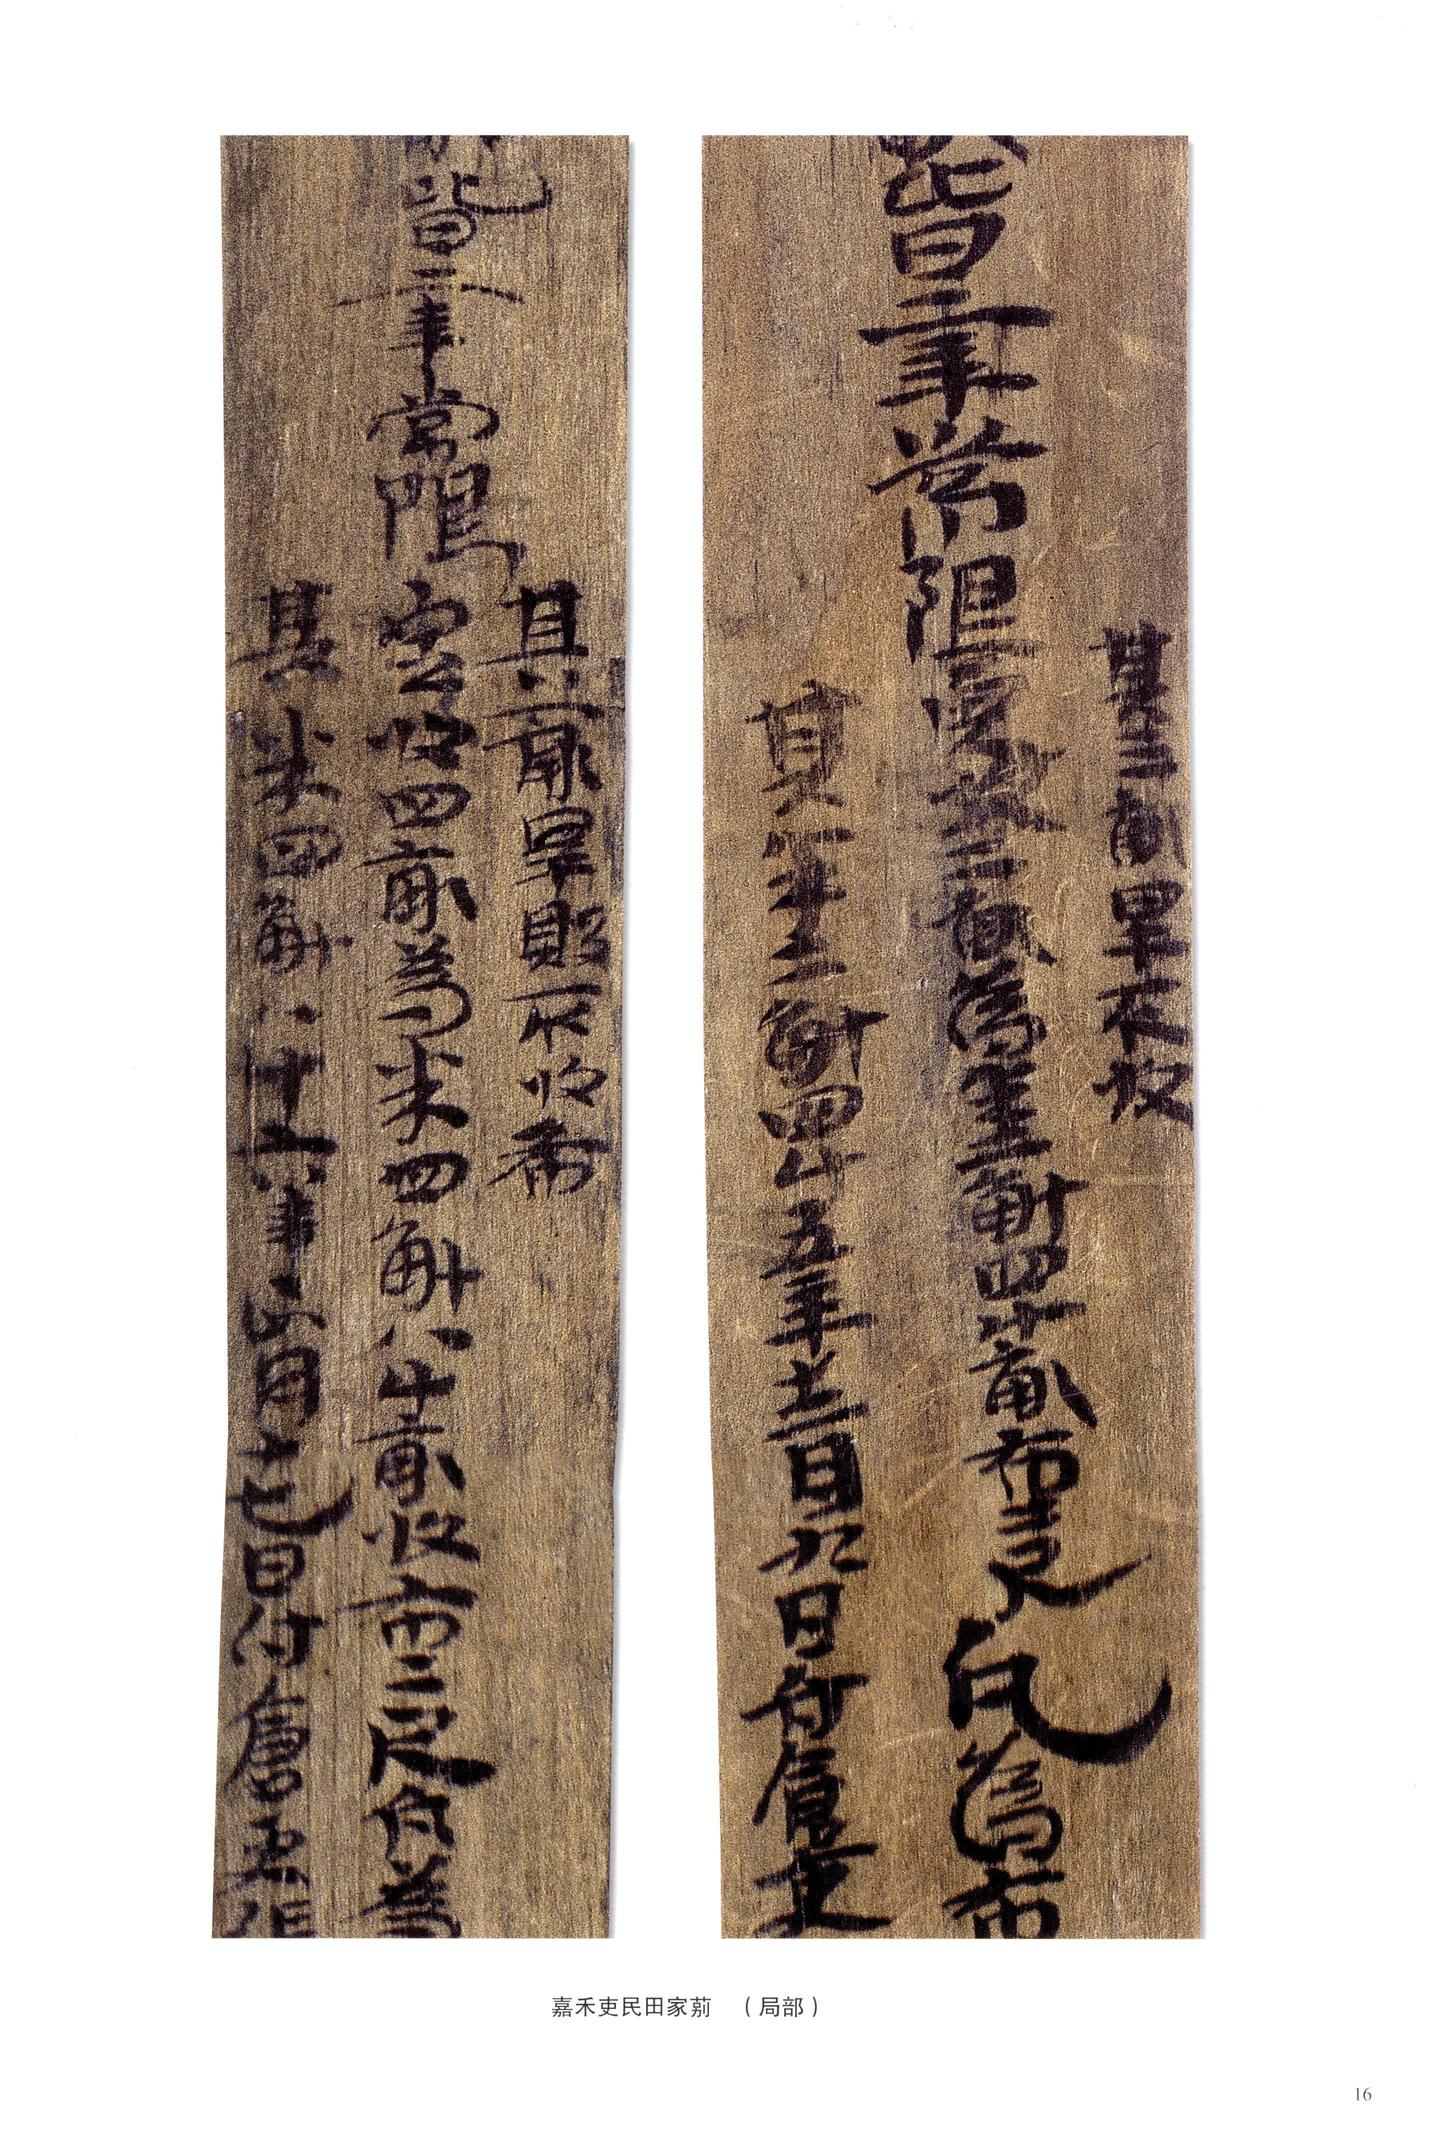 其畝旱不收
皆二年常限定收二畝為米二斛四斗畝布二尺凡為布
其米二斛四斗五年十二月九日付倉吏
其六畝旱敗不收布
皆二年常限定收四畝為米四斛八斗畝收布二尺合為
其米四斛八斗年月日付倉吏張
嘉禾吏民田家莂 （局部）
16